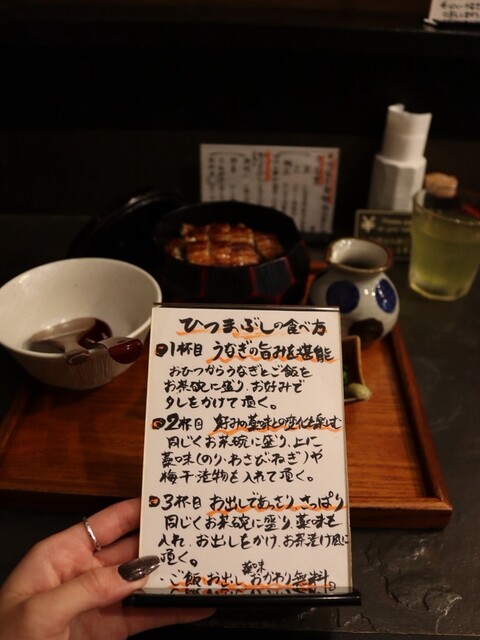 ひつまぶしの食べ方
1杯目 うなぎの旨みを堪能
おひつからうなぎとご飯を
お茶碗に盛り、お好みで
タレをかけて頂く。
2杯目 好みの薬味との変化を楽しむ
同じくお茶碗に盛り、上に
薬味(のり・わさび・ねぎ)や
梅干・漬物を入れて頂く。
3杯目 お出しであっさり、さっぱり
同じくお茶碗に盛り、薬味を
入れ、お出しをかけ、お茶漬け風に
頂く。
・ご飯、お出し、薬味 おかわり無料。